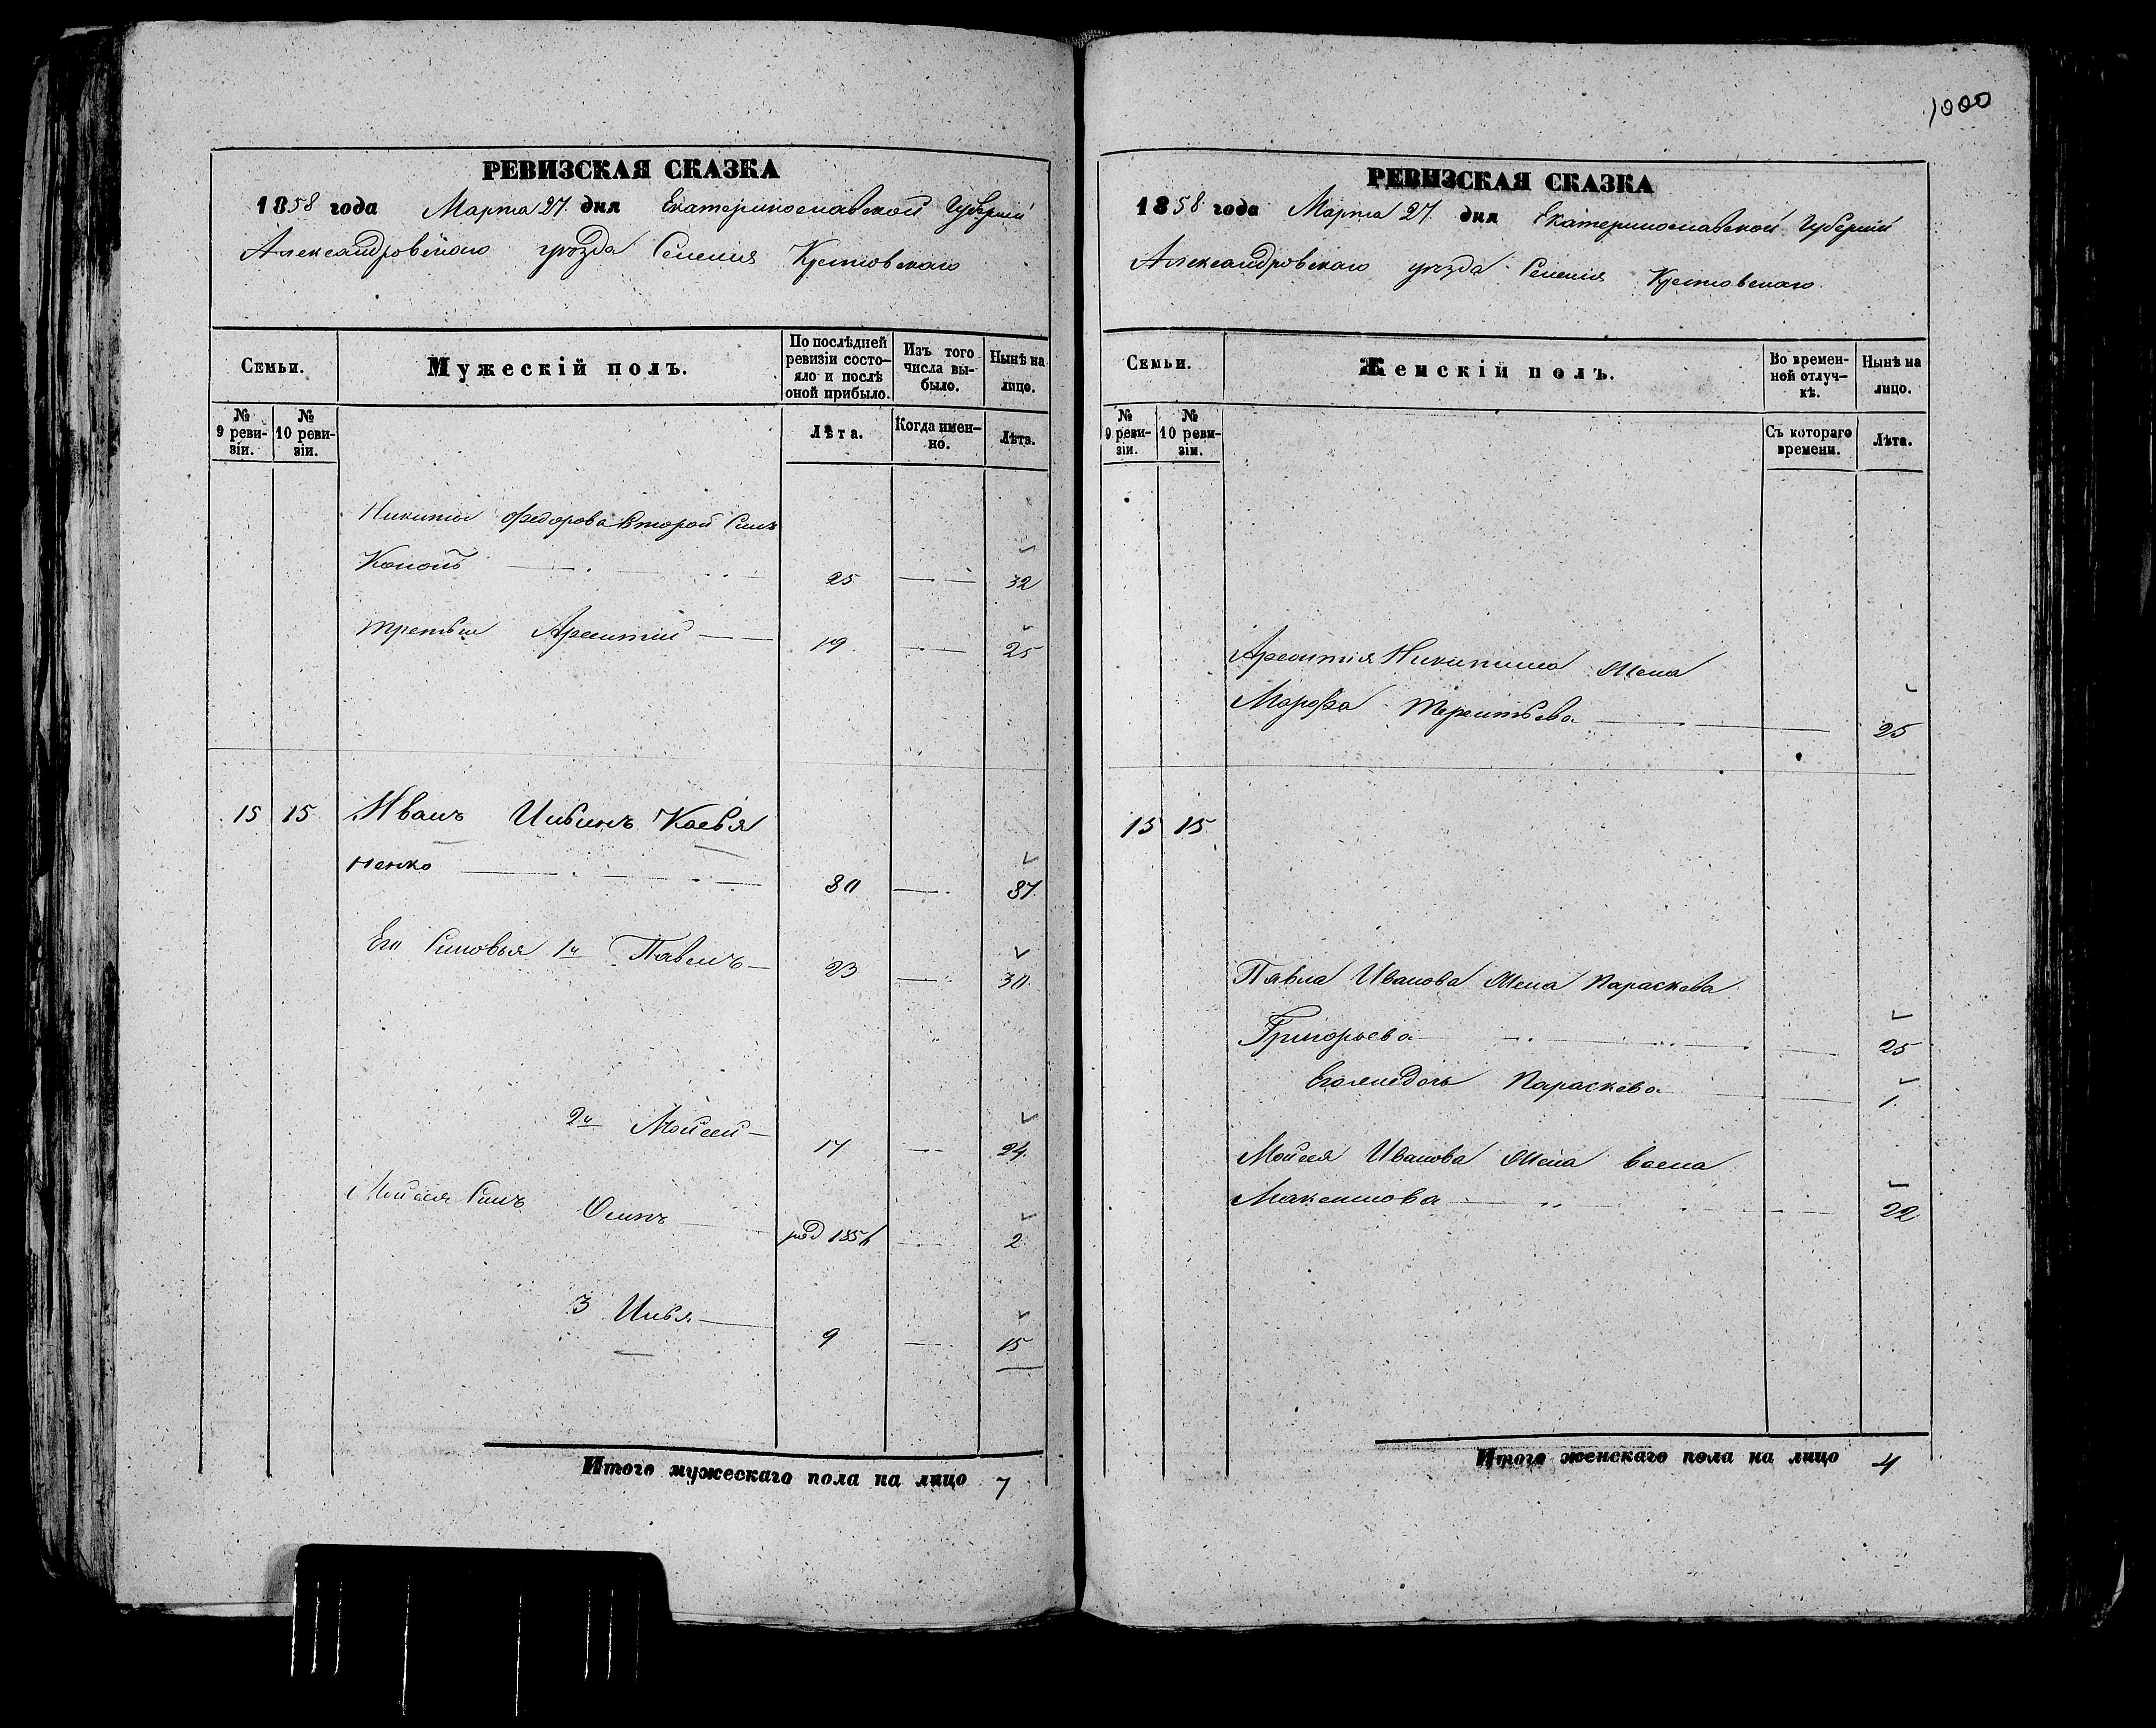 1000
РЕВИЗСКАЯ СКАЗКА
1858 года Марта 27 дня Екатеринославской Губерніи
Александровскаго уѣзда Селенія
Семьи.
Мужескій полъ.
По послѣдней ревизіи состояло и послѣ оной прибыло.
Изъ того числа выбыло.
Нынѣ на лицо.
№ 9 ревизіи.
№ 10 ревизіи.
Лѣта.
Когда именно.
Лѣта.
Никиты Федорова второй Сынъ
Кононъ 25 32
третій 19 25
15 15 Иванъ Ильинъ
ненко 30 37
Его Сыновья 1й Павелъ 23 30
2й Мойсей 17 24
Мойсея Сынъ Осипъ род 1856 2
3 Илья 9 15
Итого мужескаго пола на лицо 7
РЕВИЗСКАЯ СКАЗКА
1858 года Марта 27 дня Екатеринославской Губерніи
Александровскаго уѣзда Селенія
Семьи.
Женскій полъ.
Во временной отлучкѣ.
Нынѣ на лицо.
№ 9 ревизіи.
№ 10 ревизіи.
Съ котораго времени.
Лѣта.
Никитина жена
Марфа Терентьева 25
15 15
Павла Иванова жена Параскева
Григорьева 25
Параскева 1
Мойсея Иванова жена
Максимова 22
Итого женскаго пола на лицо 4